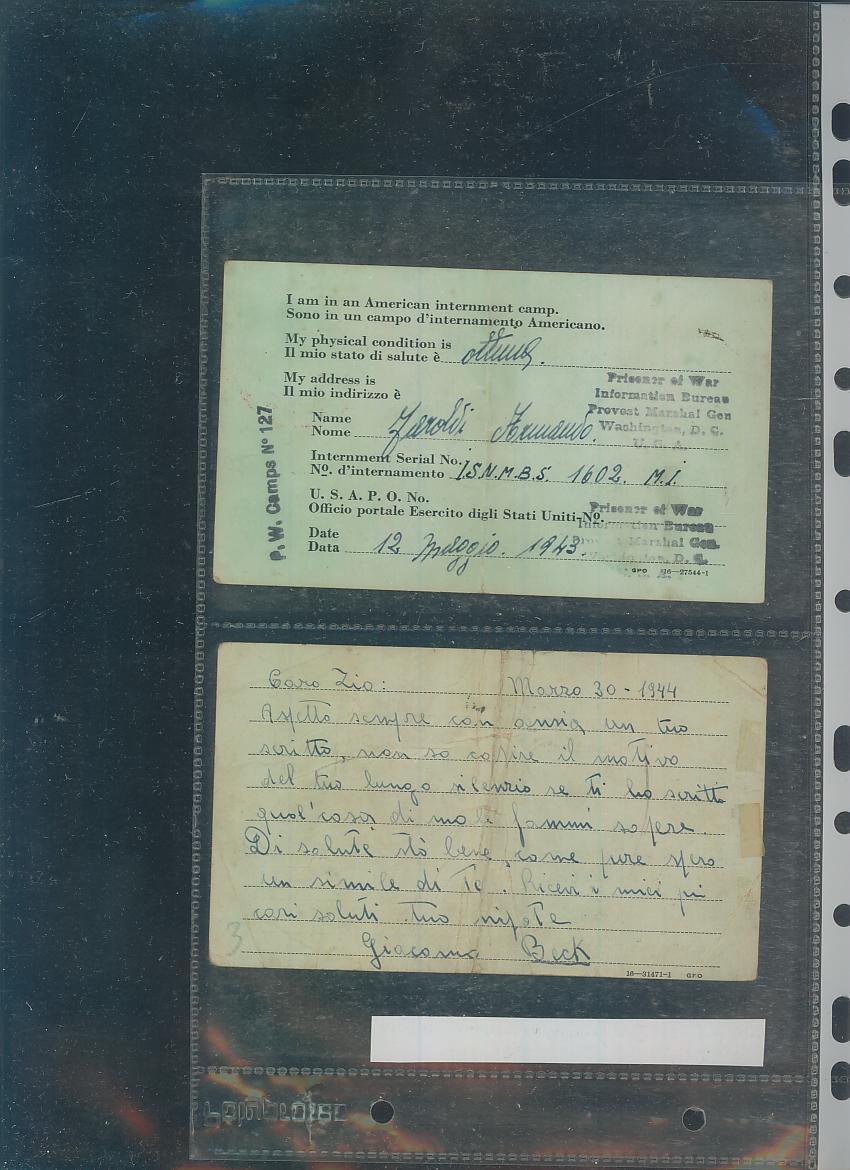 I am in an American internment camp.
Sono in un campo d'internamento Americano.
My physical condition is
Il mio stato di salute è ottima.
My address is
Il mio indirizzo è
Prisoner of War
Information Bureau
Provost Marshal Gen
Washington, D. C.
U. S. A.
Name
Nome Armando.
Internment Serial No.
Nº. d'internamento I.S.N.M.B.S. 1602. M.I.
U. S. A. P. O. No.
Officio portale Esercito digli Stati Uniti-Nº.
Prisoner of War
Information Bureau
Provost Marshal Gen.
Washington, D. C.
Date
Data 12 Maggio. 1943.
GPO 16—27544-1
P. W. Camps Nº 127
Caro Zio: Marzo 30 - 1944
Aspetto sempre con ansia un tuo
scritto, non so capire il motivo
del tuo lungo silenzio se ti ho scritto
qual'cosa di male fammi sapere.
Di salute stò bene, come pure spero
un simile di te. Ricevi i miei più
cari saluti tuo nipote
Giacomo Beck
3
16—31471-1 GPO